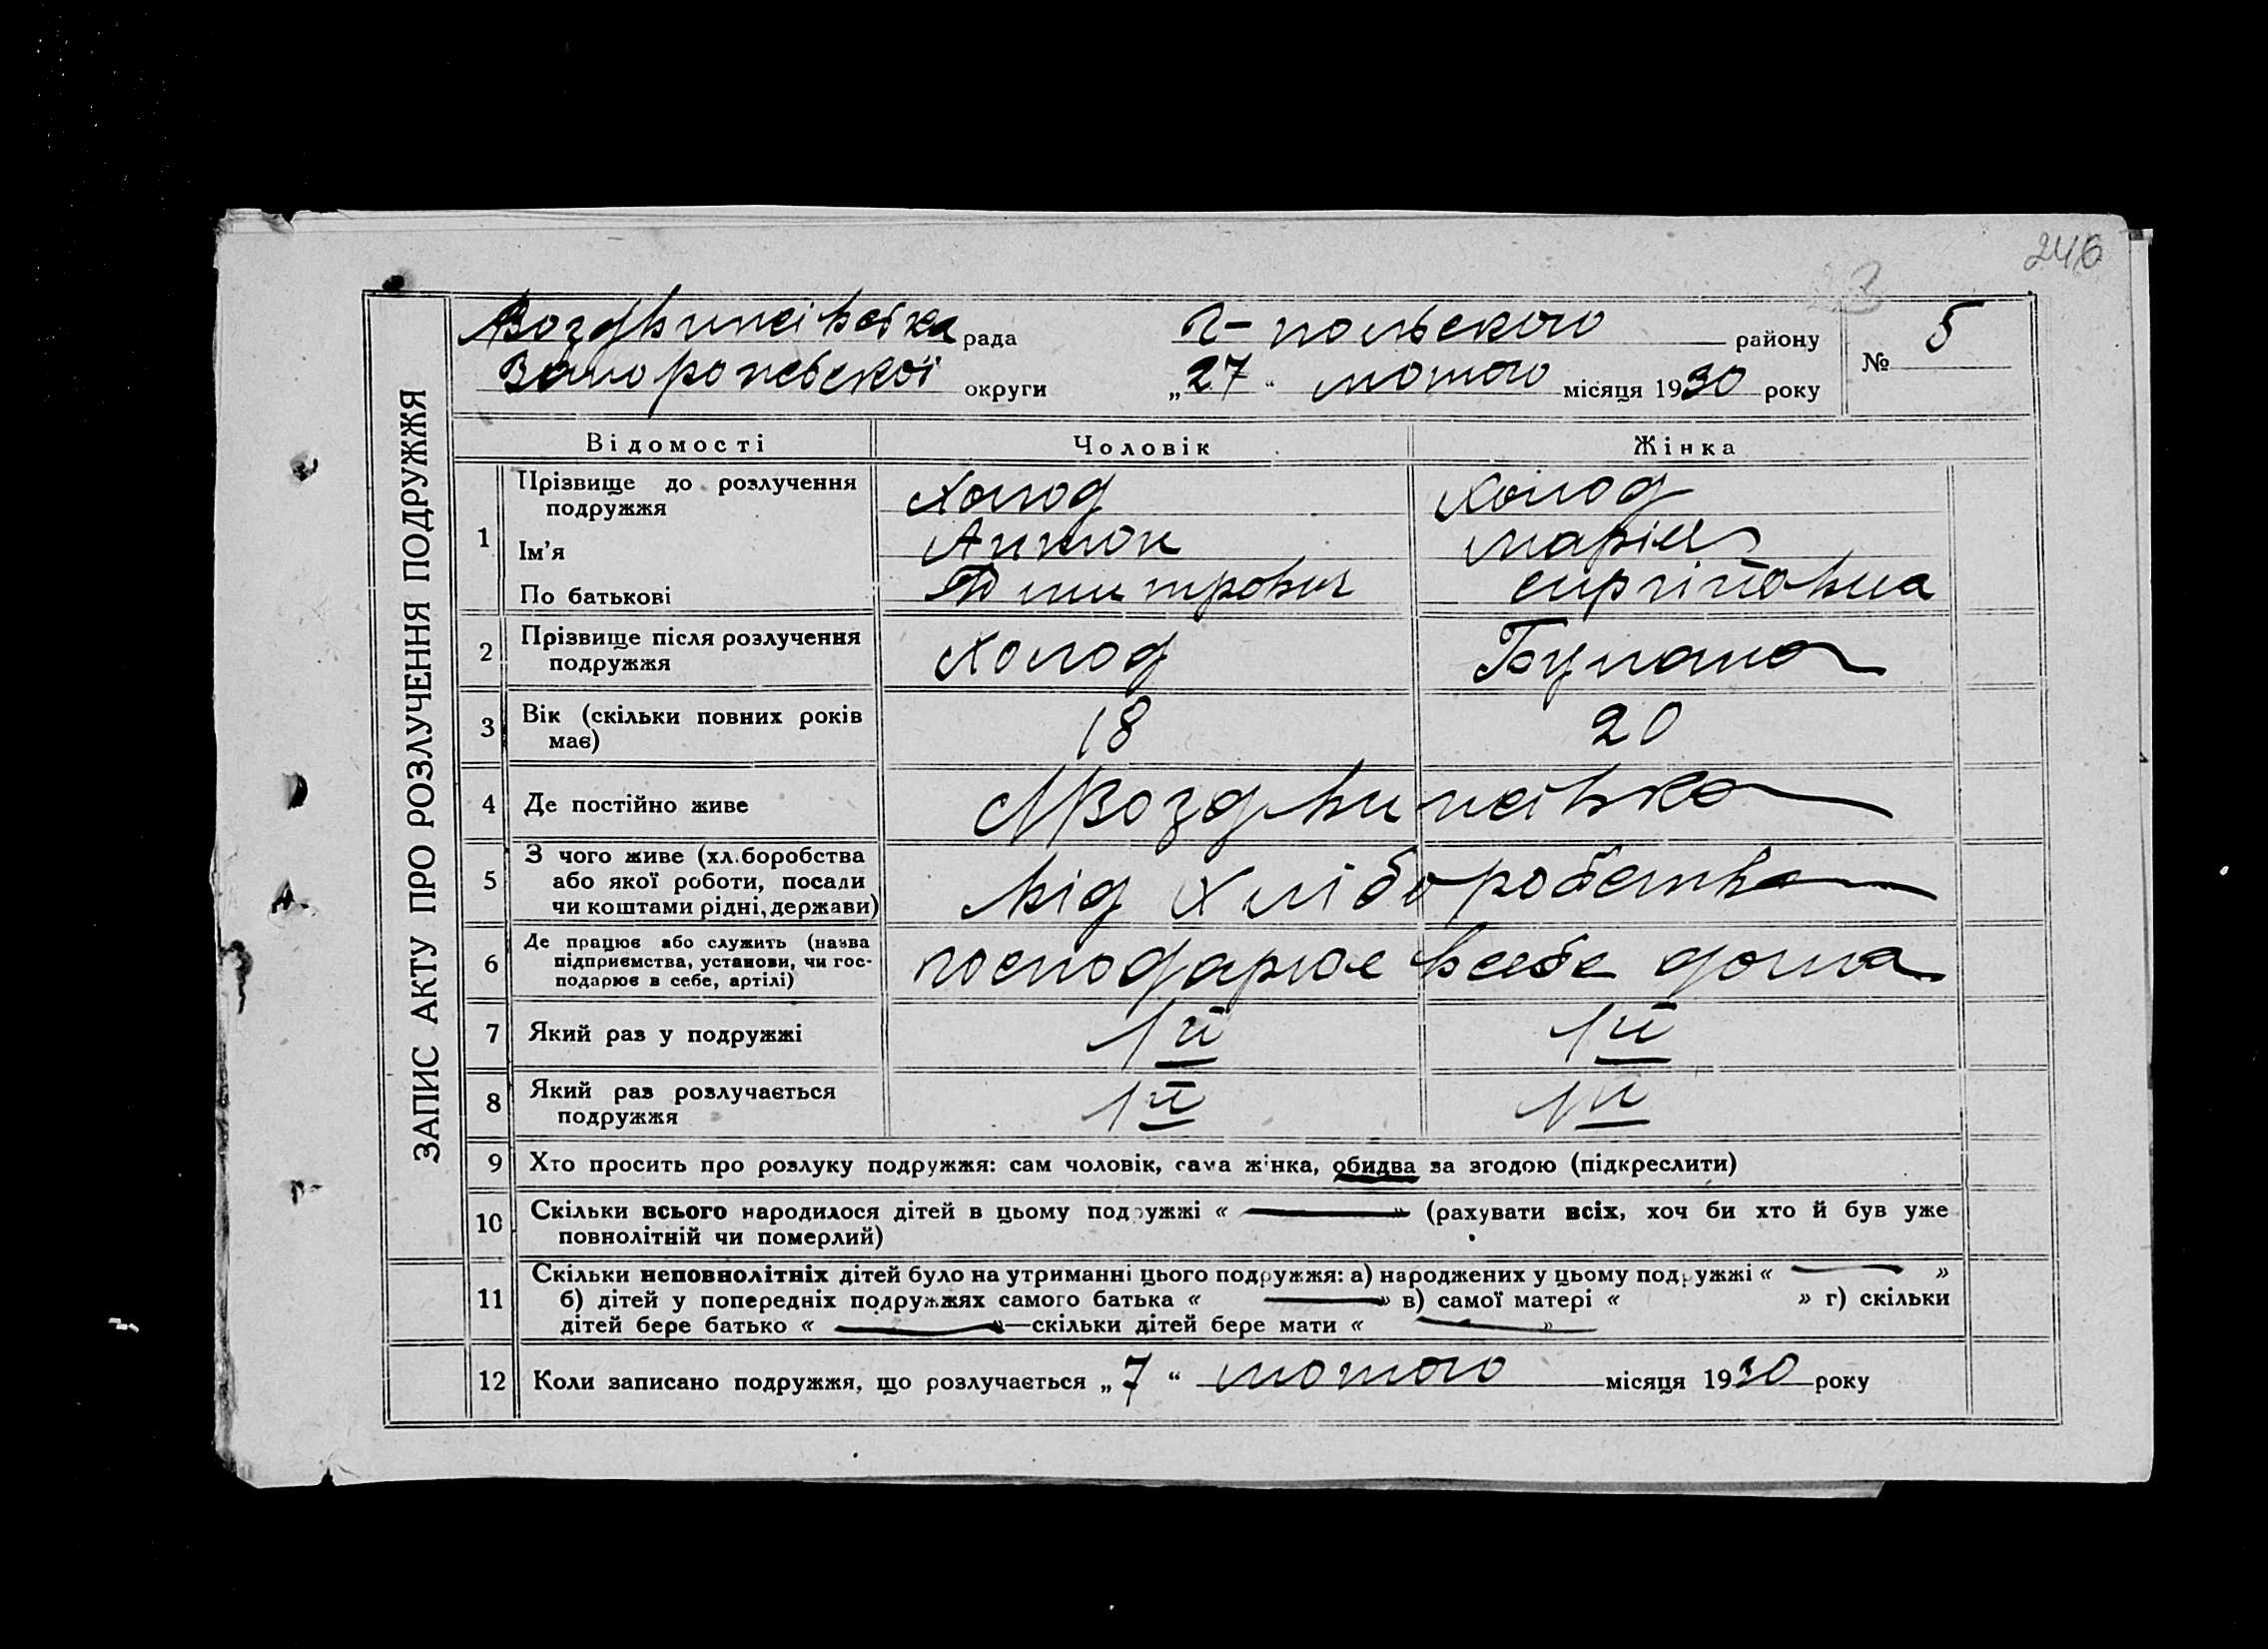 246
ЗАПИС АКТУ ПРО РОЗЛУЧЕННЯ ПОДРУЖЖЯ
Воздвижівська рада Г-польского району № 5
Запорожської округи „27“ лютого місяця 1930 року
Відомості Чоловік Жінка
1 Прізвище до розлучення подружжя Холод Холод
Ім'я Антон Марія
По батькові Дмитрович Сиргіївна
2 Прізвище після розлучення подружжя Холод
3 Вік (скільки повних років має) 18 20
4 Де постійно живе Воздвижівка
5 З чого живе (хл.боробства або якої роботи, посади чи коштами рідні, держави) від хліборобства
6 Де працює або служить (назва підприємства, установи, чи господарює в себе, артілі) господарює в себе дома
7 Який раз у подружжі 1й 1й
8 Який раз розлучається подружжя 1й 1й
9 Хто просить про розлуку подружжя: сам чоловік, сама жінка, обидва за згодою (підкреслити)
10 Скільки всього народилося дітей в цьому подружжі « — » (рахувати всіх, хоч би хто й був уже
повнолітній чи померлий)
11 Скільки неповнолітніх дітей було на утриманні цього подружжя: а) народжених у цьому подружжі « — »
б) дітей у попередніх подружжях самого батька « — » в) самої матері « » г) скільки
дітей бере батько « — »—скільки дітей бере мати « — »
12 Коли записано подружжя, що розлучається „7“ лютого місяця 1930 року